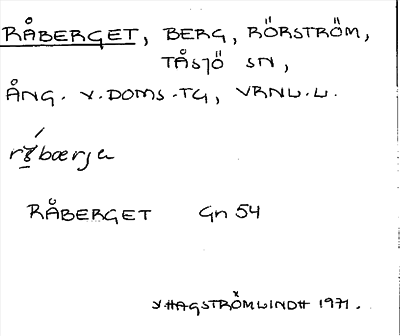 RÅBERGET, BERG, RÖRSTRÖM,
TÅSJÖ SN,
ÅNG. V. DOMS. TG, VRNL.L.
RÅBERGET Gn 54
HAGSTRÖM LINDH 1971.